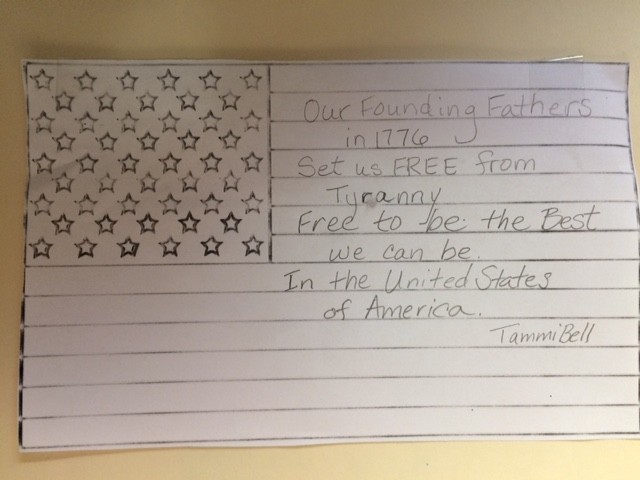 Our Founding Fathers
in 1776
Set us FREE from
Tyranny
Free to be the Best
we can be.
In the United States
of America.
Tammi Bell